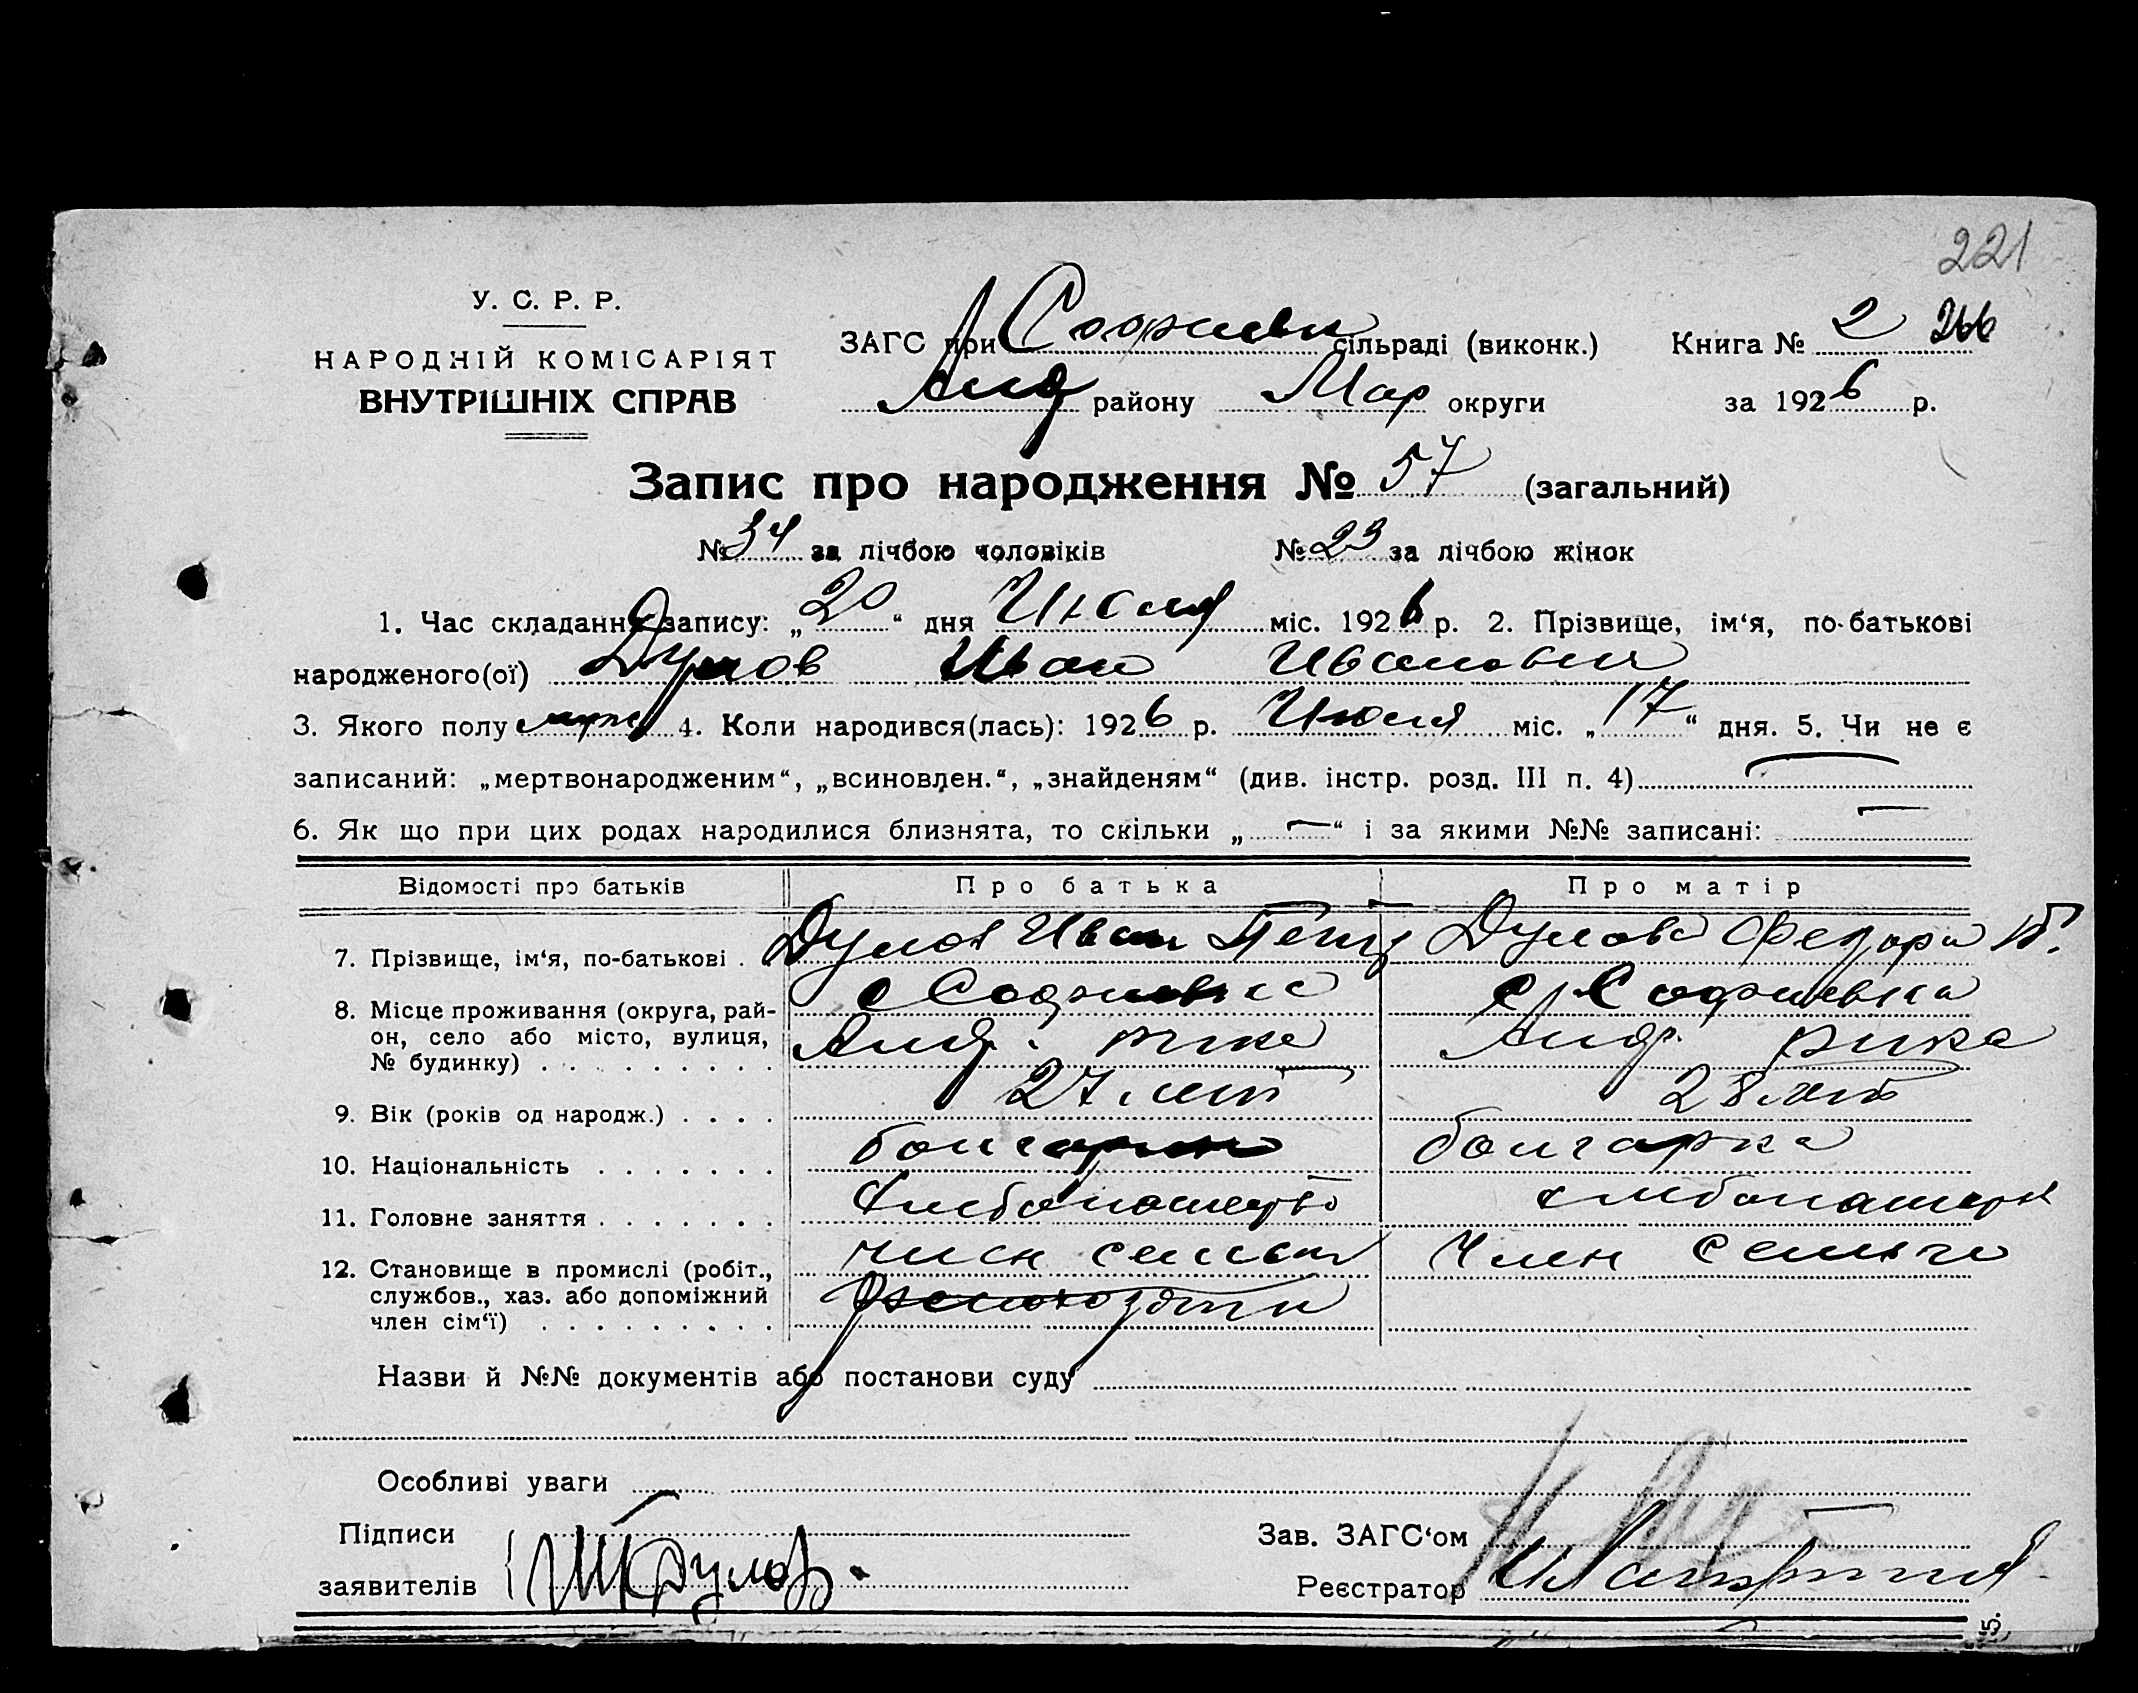 221
У. С. Р. Р.
НАРОДНІЙ КОМІСАРІЯТ
ВНУТРІШНІХ СПРАВ
ЗАГС при Софиевк сільраді (виконк.) Книга № 2 266
Анд району Мар округи за 1926 р.
Запис про народження № 57 (загальний)
№ 34 за лічбою чоловіків № 23 за лічбою жінок
1. Час складання запису: „20“ дня Июля міс. 1926 р. 2. Прізвище, ім‘я, по-батькові
народженого(ої) Дулов Иван Иванович
3. Якого полу муж 4. Коли народився(лась): 1926 р. Июля міс. „17“ дня. 5. Чи не є
записаний: „мертвонародженим“, „всиновлен.“, „знайденям“ (див. інстр. розд. III п. 4)
6. Як що при цих родах народилися близнята, то скільки „—“ і за якими №№ записані: —
Відомості про батьків Про батька Про матір
7. Прізвище, ім‘я, по-батькові Дулов Иван Дулова Федора
8. Місце проживання (округа, рай-
он, село або місто, вулиця,
№ будинку)
с Софиевка с Софиевка
Анд. рика Андр. рика
9. Вік (років од народж.) 27 лет 28 лет
10. Національність болгарин болгарка
11. Головне заняття хлебопашество хлебопаше
12. Становище в промислі (робіт.,
службов., хаз. або допоміжний
член сім‘ї)
член семьи Член семьи
Назви й №№ документів або постанови суду
Особливі уваги
Підписи
заявителів
Дулов.
Зав. ЗАГС‘ом
Реєстратор